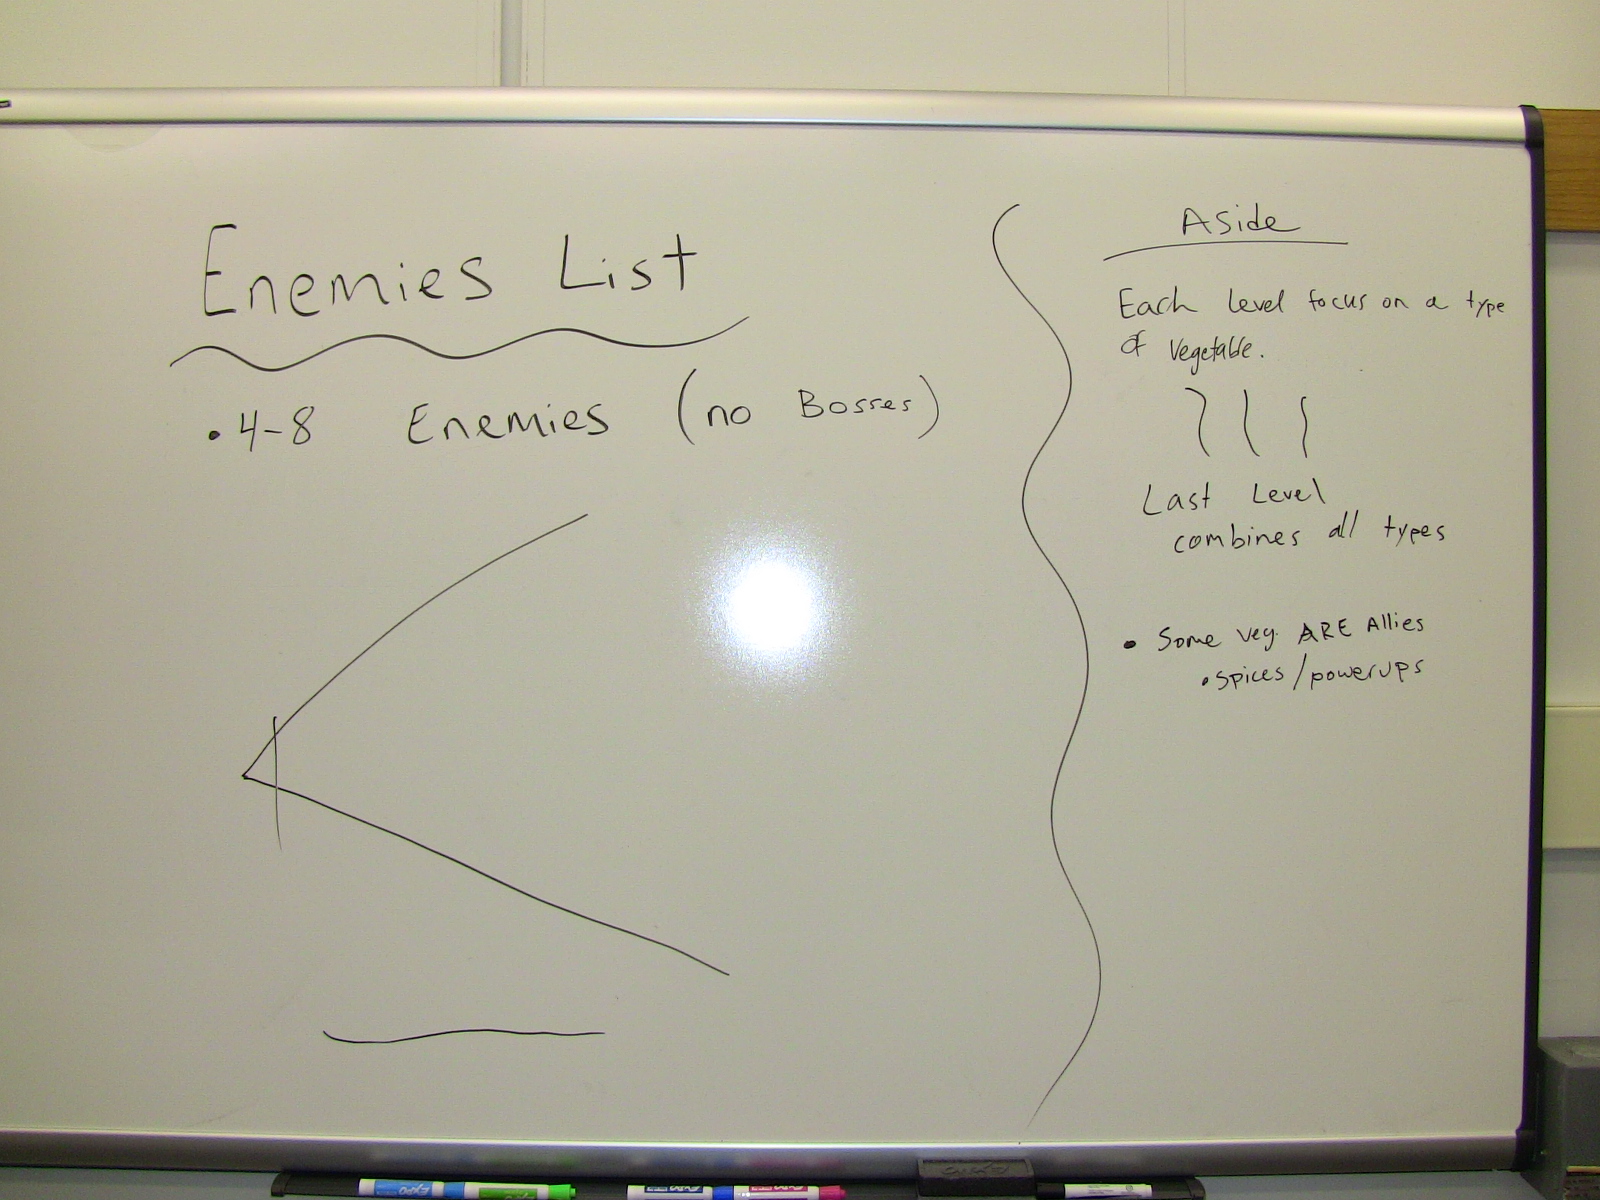 Enemies List
• 4-8 Enemies (no Bosses)
Aside
Each level focus on a type
of vegetable.
Last Level
combines all types
• Some veg. ARE Allies
• spices/powerups
EXPO